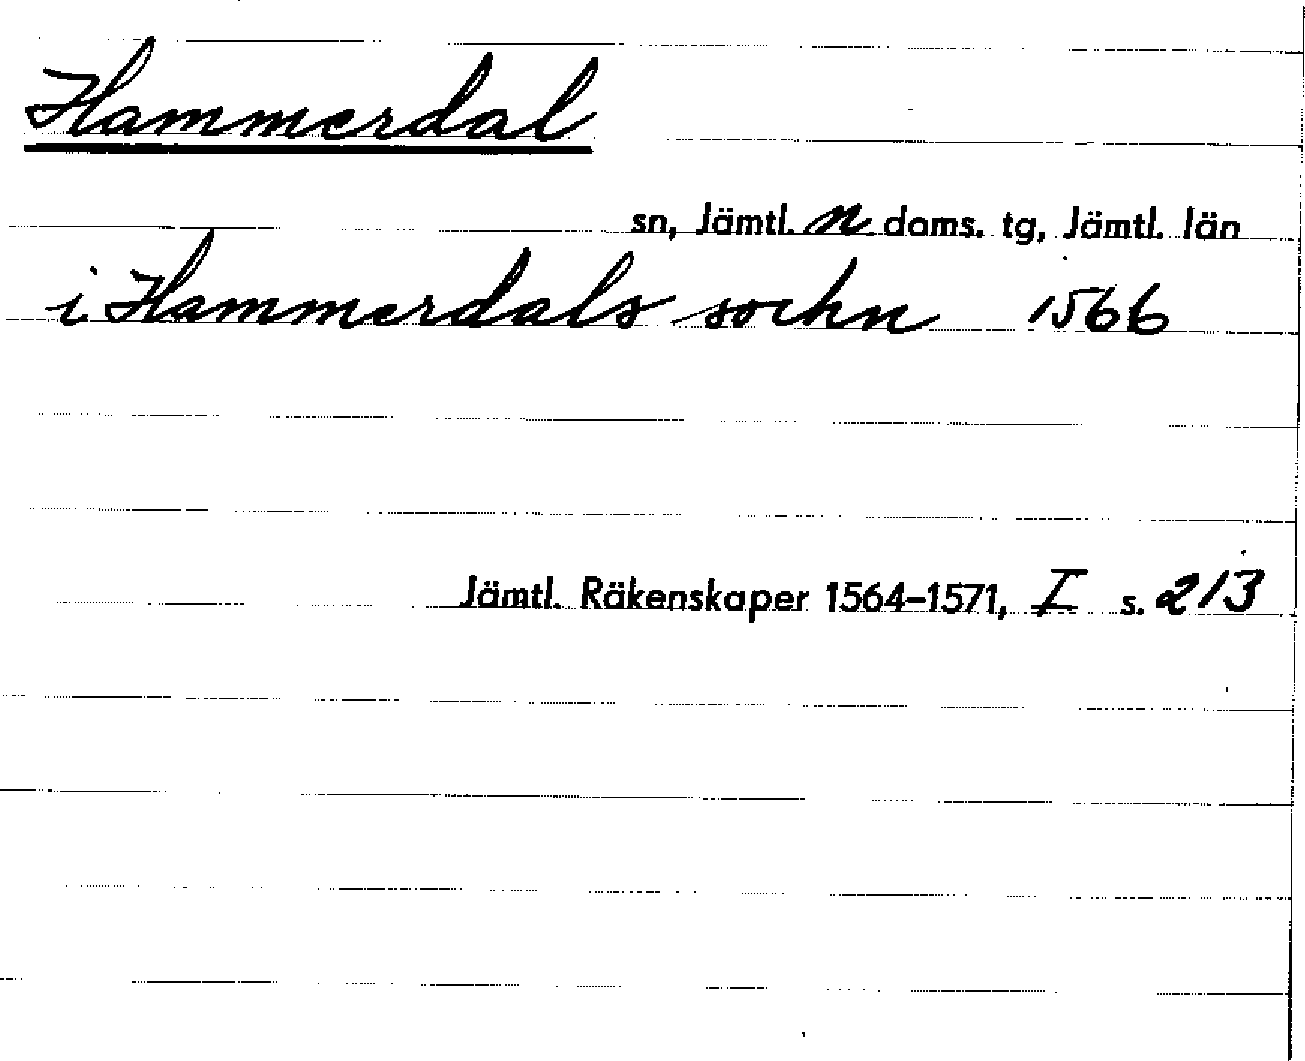 Hammerdal
sn, Jämtl. n doms. tg, Jämtl. län
i Hammerdals sochn 1566
Jämtl. Räkenskaper 1564-1571, I s. 213